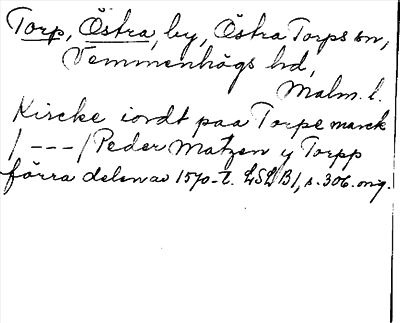 Torp, Östra, by, Östra Torps sn,
Vemmenhögs hd,
Malm. l.
Kircke iordt paa Torpe marck
/ --- / Peder Matzen y Torpp
förra delen av 1570-t. LSLB1, s. 306. orig.